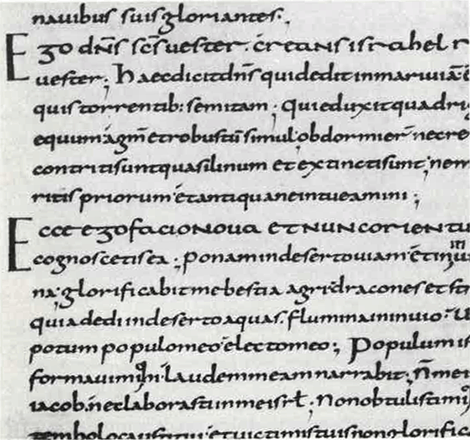 nauibus suis gloriantes.
Ego dn̄s sc̄s uester. creans israhel r
uester; Haec dicit dn̄s qui dedit in mari uiā
quis torrentib: semitam; Qui eduxit quadri
equum agm̄ et robustū simul obdormier̄ nec re
contriti sunt quasi linum et extincti sunt; nem
ritis priorum et antiqua ne intueamini;
Ecce ego facio noua et nunc orientu
cognoscetis ea; ponam in deserto uiam et in
na; glorificabit me bestia agri dracones et st
quia dedi in deserto aquas. flumina in inuio. u
potum populo meo electo meo; Populum is
formaui mihi laudem meam narrabit; n̄ me i
iacob. nec laborasti in me isrł; non obtulisti mi
tem holocausti tui et uictimis tuis non glorific